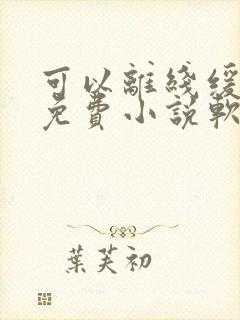 可以離綫緩
免費小説軟
葉芙初